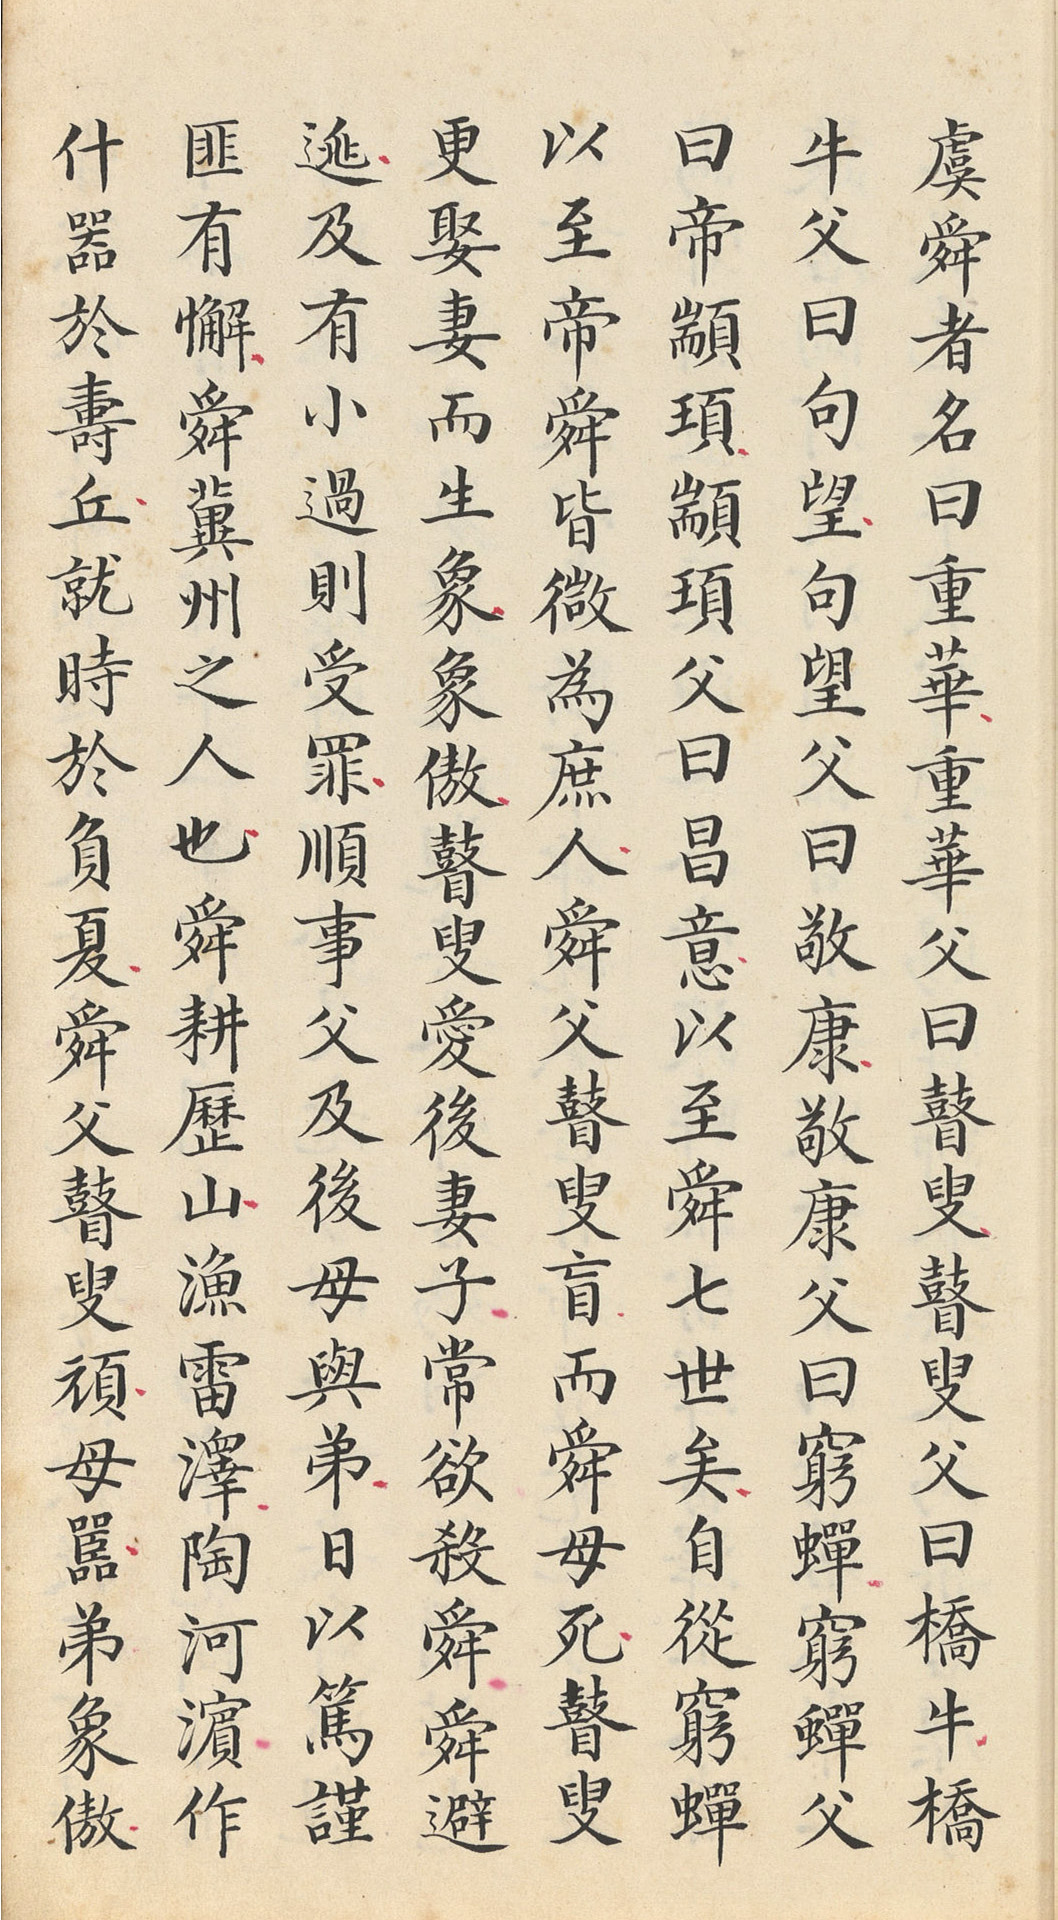 虞舜者名曰重華重華父曰瞽叟瞽叟父曰橋牛橋
牛父曰句望句望父曰敬康敬康父曰窮蟬窮蟬父
曰帝顓頊顓頊父曰昌意以至舜七世矣自從窮蟬
以至帝舜皆微為庶人舜父瞽叟盲而舜母死瞽叟
更娶妻而生象象傲瞽叟愛後妻子常欲殺舜舜避
逃及有小過則受罪順事父及後母與弟日以篤謹
匪有懈舜冀州之人也舜耕歷山漁雷澤陶河濱作
什器於壽丘就時於負夏舜父瞽叟頑母嚚弟象傲